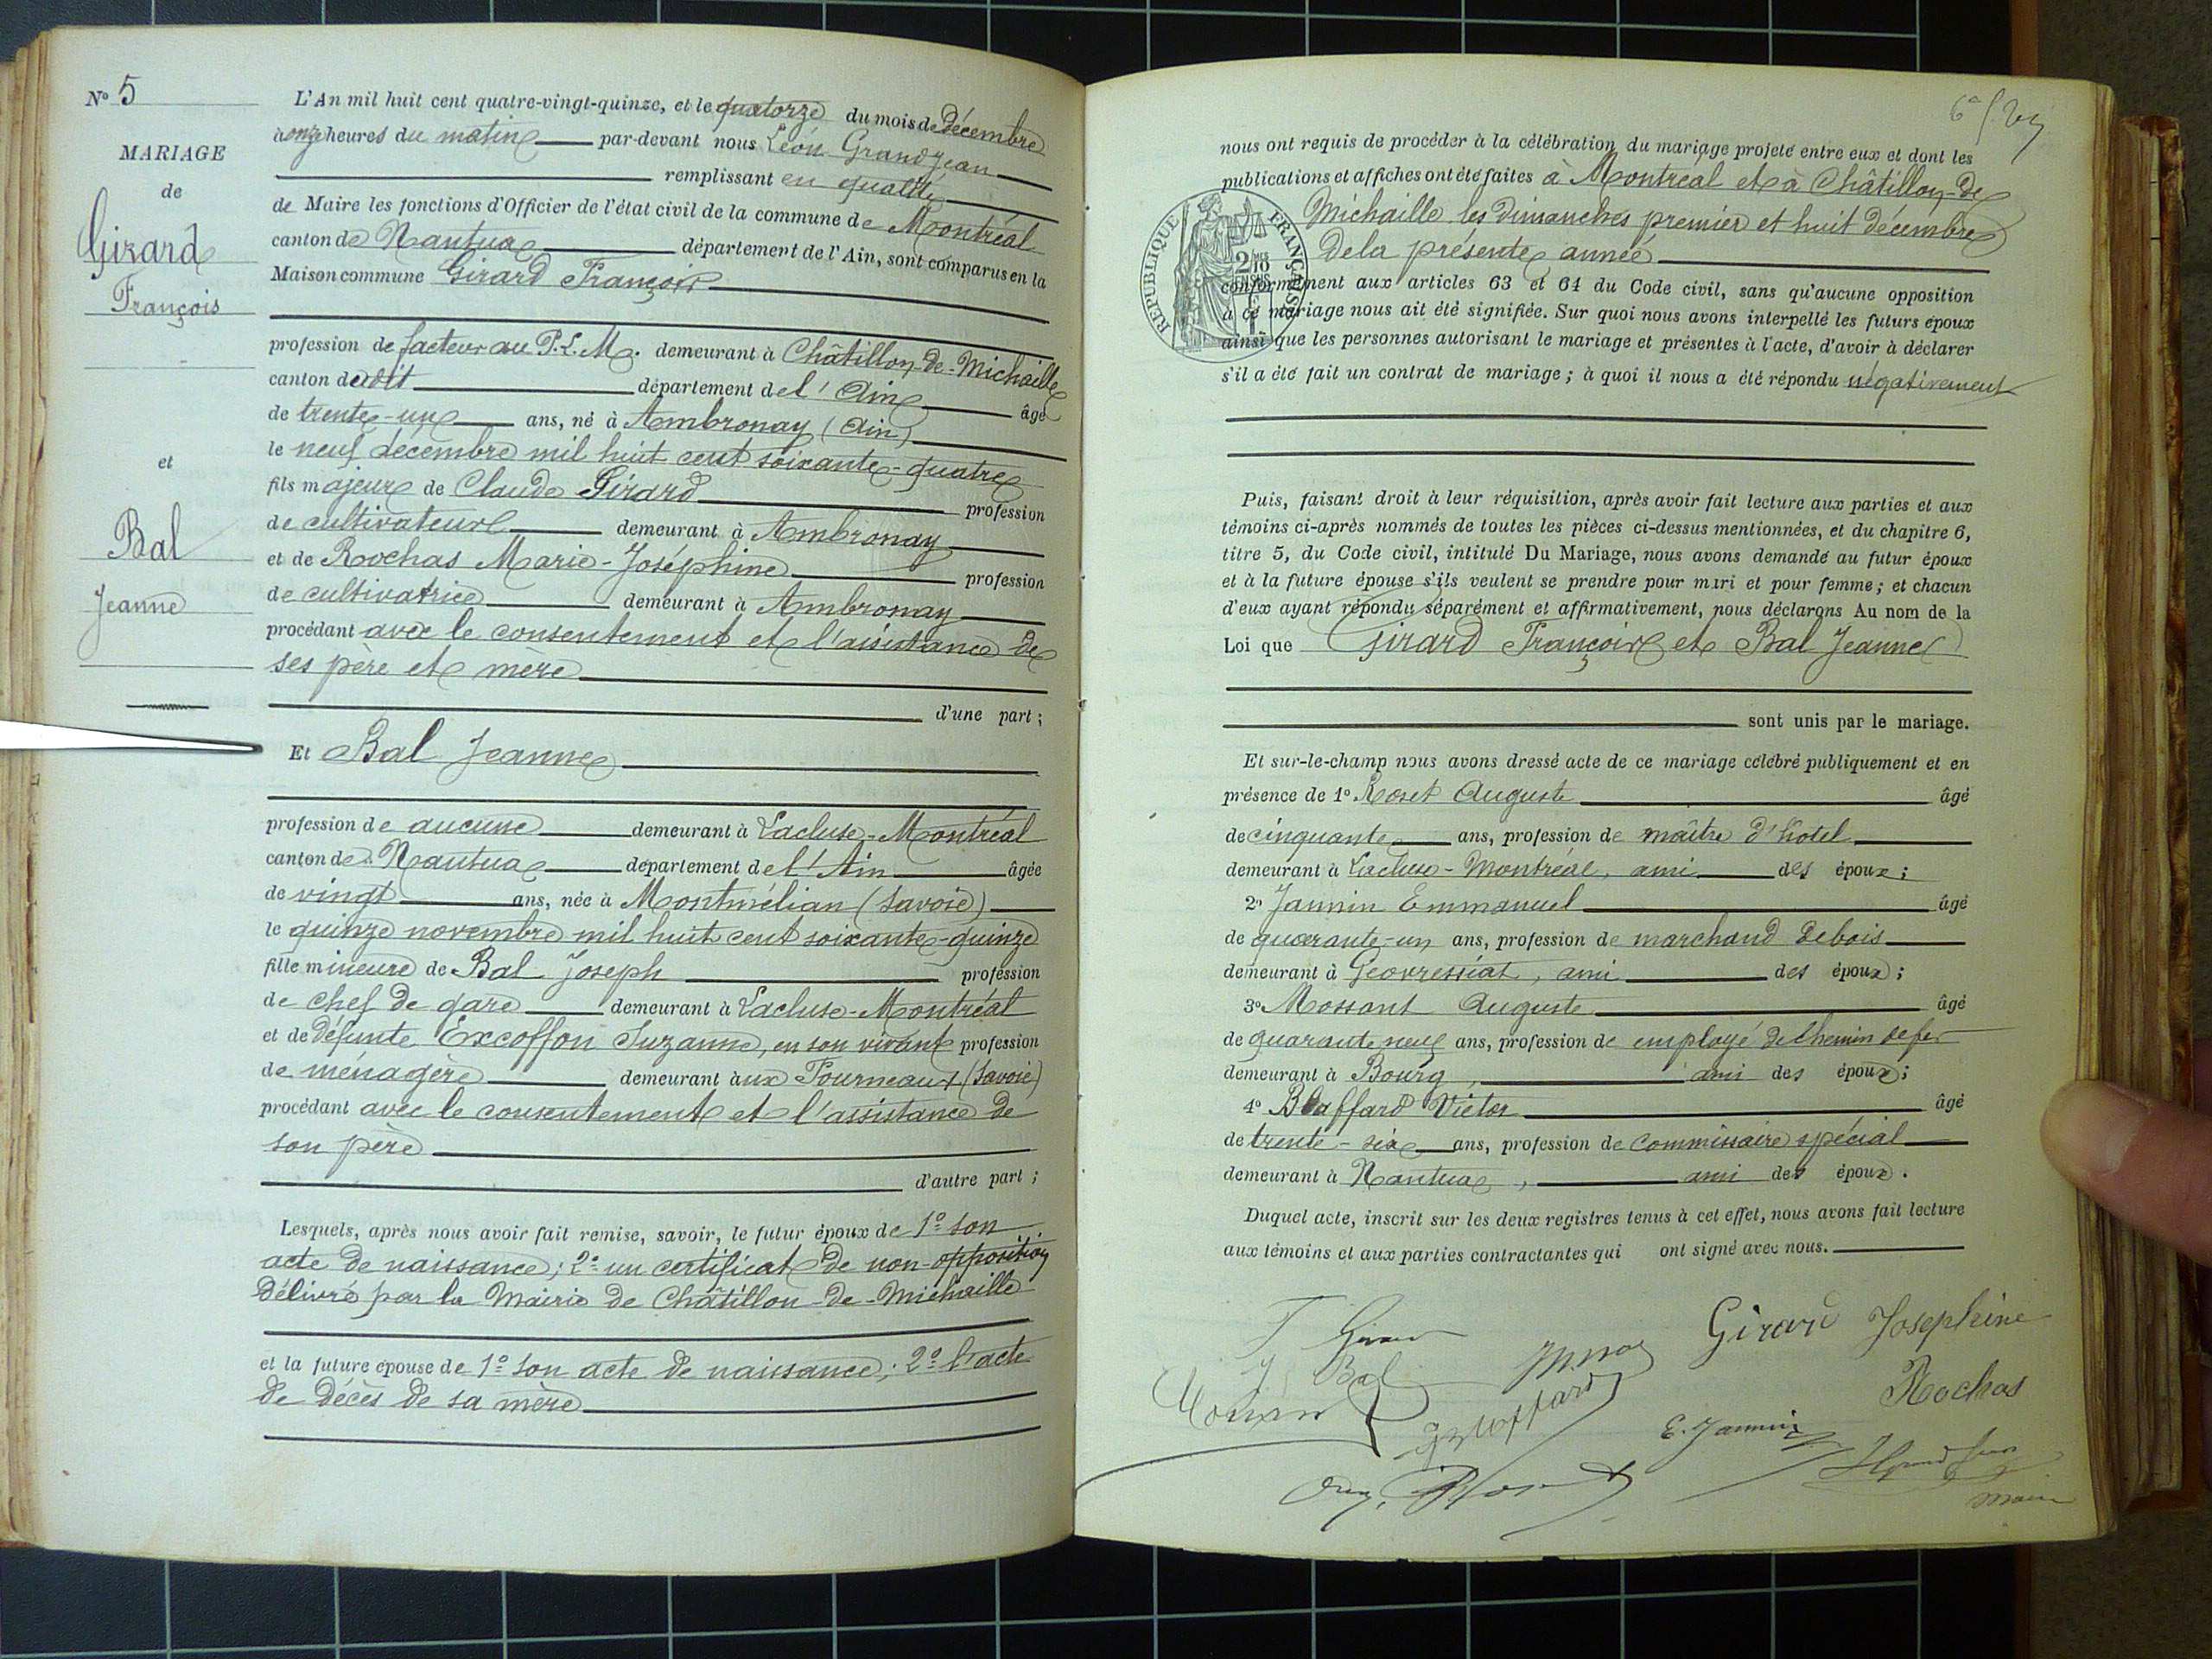 N° 5
MARIAGE
de
Girard
François
et
Bal
Jeanne
L'An mil huit cent quatre-vingt-quinze, et le quatorze du mois de décembre
à onze heures du matin par-devant nous Léon Grandjean
remplissant en qualité
de Maire les fonctions d'Officier de l'état civil de la commune de Montréal
canton de Nantua département de l'Ain, sont comparus en la
Maison commune Girard François
profession de facteur au P.L.M. demeurant à Châtillon-de-Michaille
canton dudit département de l'Ain âgé
de trente-un ans, né à Ambronay (Ain)
le neuf décembre mil huit cent soixante-quatre
fils majeur de Claude Girard profession
de cultivateur demeurant à Ambronay
et de Rochas Marie-Joséphine profession
de cultivatrice demeurant à Ambronay
procédant avec le consentement et l'assistance de
ses père et mère
d'une part;
Et Bal Jeanne
profession de aucune demeurant à Lacluse-Montréal
canton de Nantua département de l'Ain âgée
de vingt ans, née à Montmélian (Savoie)
le quinze novembre mil huit cent soixante-quinze
fille mineure de Bal Joseph profession
de chef de gare demeurant à Lacluse-Montréal
et de défunte Excoffon Suzanne, en son vivant profession
de ménagère demeurant aux Fourneaux (Savoie)
procédant avec le consentement et l'assistance de
son père
d'autre part;
Lesquels, après nous avoir fait remise, savoir, le futur époux de 1° son
acte de naissance; 2° un certificat de non-opposition
délivré par la Mairie de Châtillon-de-Michaille
et la future épouse de 1° son acte de naissance; 2° l'acte
de décès de sa mère
nous ont requis de procéder à la célébration du mariage projeté entre eux et dont les
publications et affiches ont été faites à Montréal et à Châtillon-de
Michaille les dimanches premier et huit décembre
de la présente année
RÉPUBLIQUE FRANÇAISE
conformément aux articles 63 et 64 du Code civil, sans qu'aucune opposition
à ce mariage nous ait été signifiée. Sur quoi nous avons interpellé les futurs époux
ainsi que les personnes autorisant le mariage et présentes à l'acte, d'avoir à déclarer
s'il a été fait un contrat de mariage; à quoi il nous a été répondu négativement
Puis, faisant droit à leur réquisition, après avoir fait lecture aux parties et aux
témoins ci-après nommés de toutes les pièces ci-dessus mentionnées, et du chapitre 6,
titre 5, du Code civil, intitulé Du Mariage, nous avons demandé au futur époux
et à la future épouse s'ils veulent se prendre pour mari et pour femme; et chacun
d'eux ayant répondu séparément et affirmativement, nous déclarons Au nom de la
Loi que Girard François et Bal Jeanne
sont unis par le mariage.
Et sur-le-champ nous avons dressé acte de ce mariage célébré publiquement et en
présence de 1° Roset Auguste âgé
de cinquante ans, profession de maître d'hôtel
demeurant à Lacluse-Montréal, ami des époux;
2° Jannin Emmanuel âgé
de quarante-un ans, profession de marchand de bois
demeurant à Géovressiat, ami des époux;
3° Mossant Auguste âgé
de quarante neuf ans, profession de employé de chemin de fer
demeurant à Bourg, ami des époux;
4° Blaffard Victor âgé
de trente-six ans, profession de commissaire spécial
demeurant à Nantua, ami des époux.
Duquel acte, inscrit sur les deux registres tenus à cet effet, nous avons fait lecture
aux témoins et aux parties contractantes qui ont signé avec nous.
F Girard
J Bal
Girard Josephine
Rochas
E. Jannin
Aug. Roset
Maire